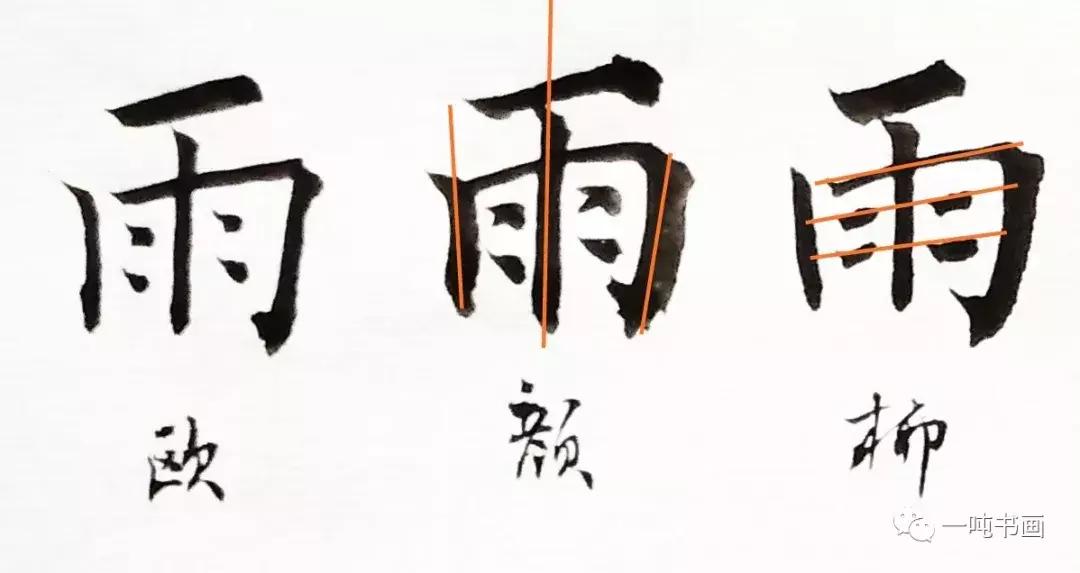 雨 雨 雨
欧 颜 柳
一吨书画